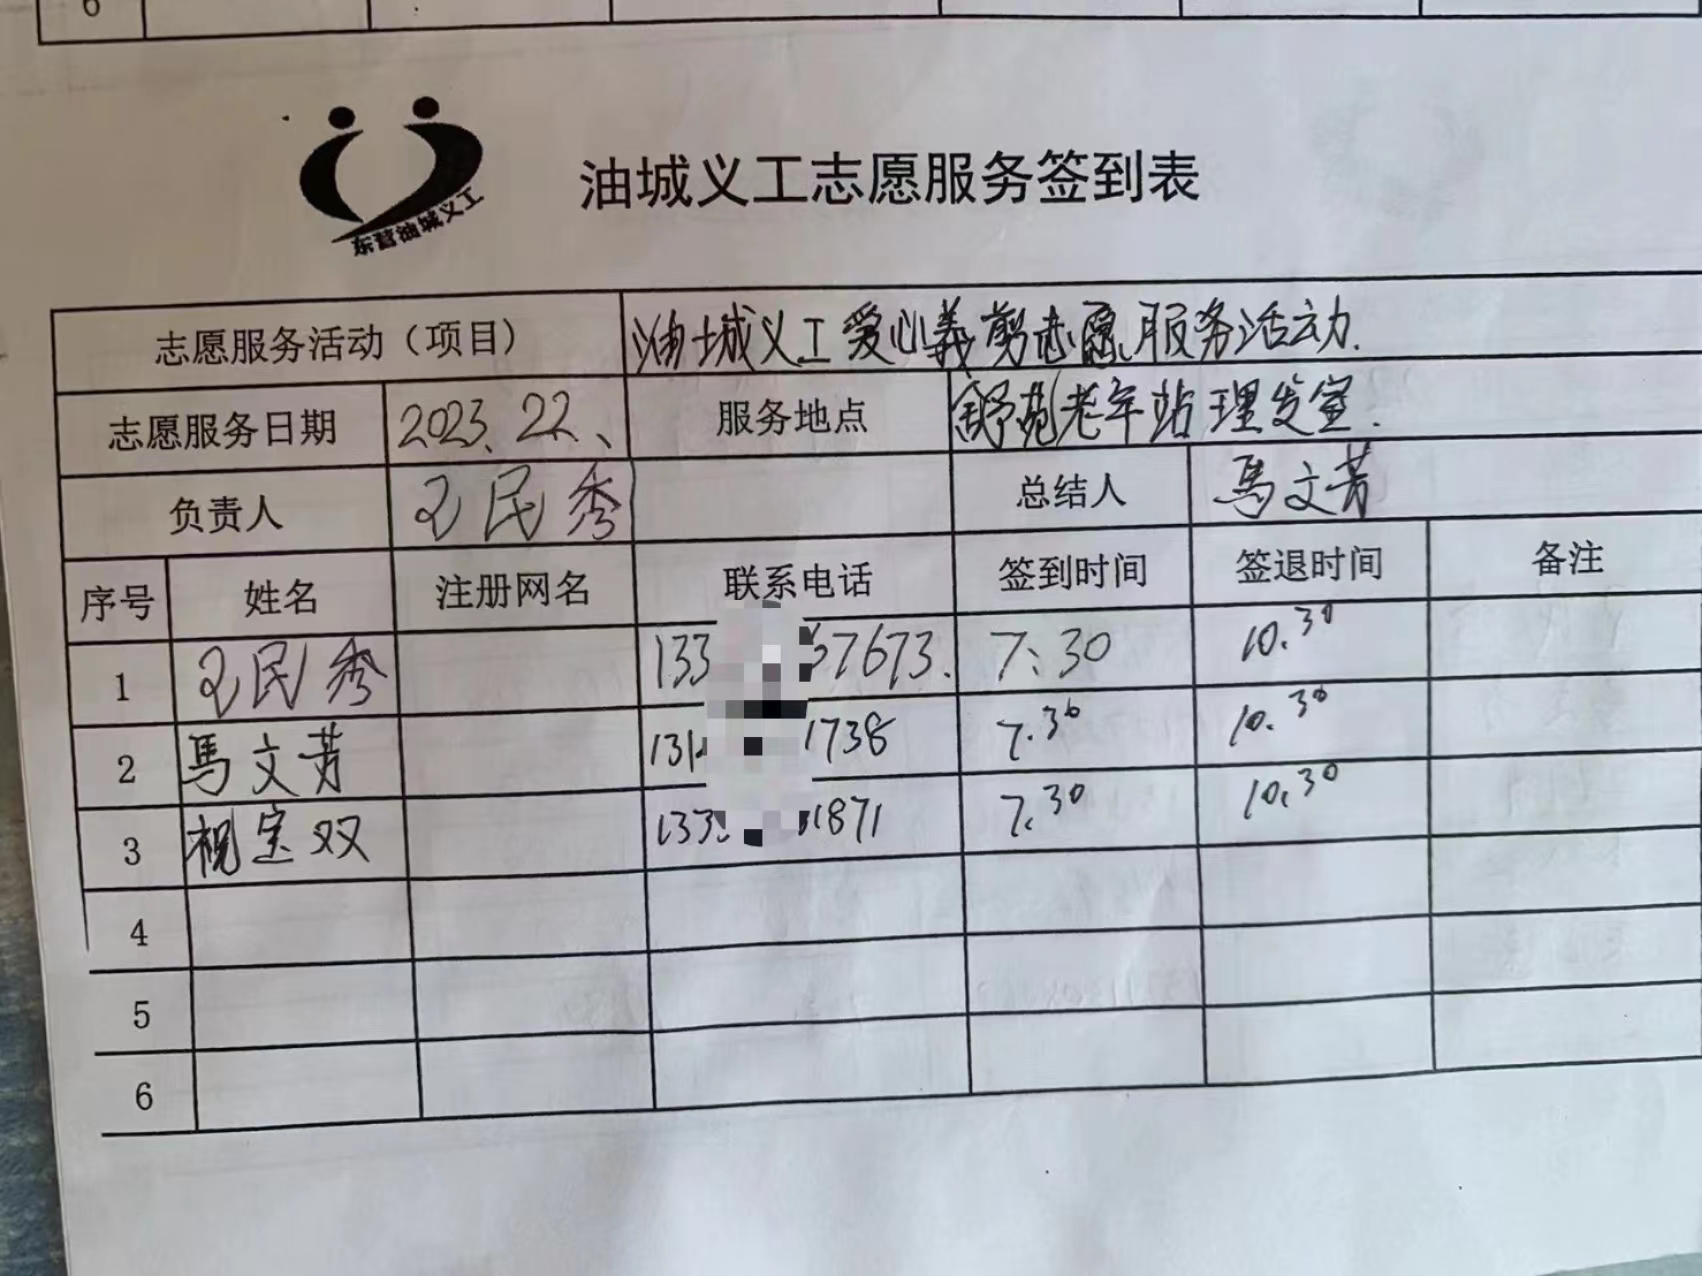 6
东营油城义工
油城义工志愿服务签到表
志愿服务活动（项目） 油城义工爱心義剪志愿服务活动.
志愿服务日期 2023、22、 服务地点 舒苑老年站理发室.
负责人 王民秀 总结人 馬文芳
序号 姓名 注册网名 联系电话 签到时间 签退时间 备注
1 王民秀 133 57673. 7、30 10.30
2 馬文芳 131 1738 7.30 10.30
3 祝宝双 133 1871 7.30 10.30
4
5
6